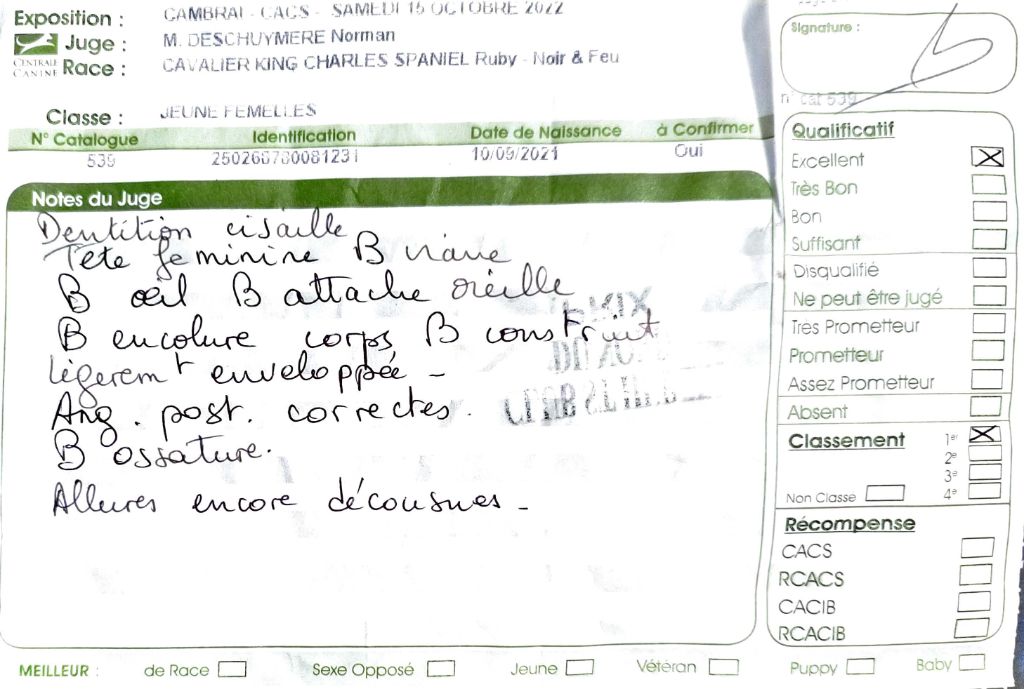 Exposition : CAMBRAI - CACS - SAMEDI 15 OCTOBRE 2022
Juge : M. DESCHUYMERE Norman
CENTRALE CANINE
Race : CAVALIER KING CHARLES SPANIEL Ruby - Noir & Feu
Classe : JEUNE FEMELLES
N° Catalogue Identification Date de Naissance à Confirmer
539 250268780081231 10/09/2021 Oui
Notes du Juge
Dentition cisaille
Tête féminine B
B œil B attache oreille
B encolure corps B construit
légeremt enveloppée -
Ang. post. correctes.
B ossature.
Allures encore décousues -
MEILLEUR : de Race Sexe Opposé Jeune Vétéran Puppy Baby
Signature :
n° cat 539
Qualificatif
Excellent X
Très Bon
Bon
Suffisant
Disqualifié
Ne peut être jugé
Très Prometteur
Prometteur
Assez Prometteur
Absent
Classement 1er X
2e
3e
Non Classe 4e
Récompense
CACS
RCACS
CACIB
RCACIB